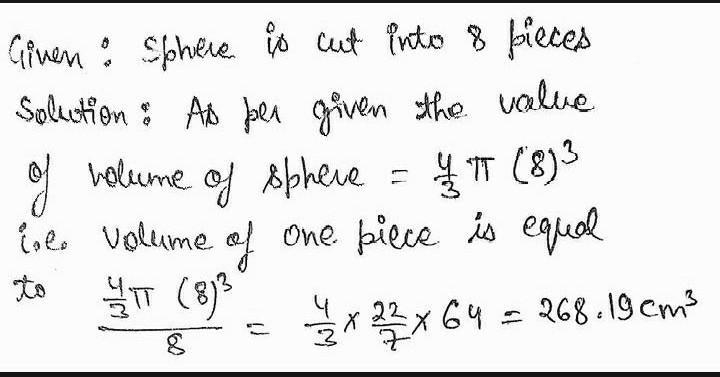 Given : Sphere is cut into 8 pieces
Solution : As per given the value
of volume of sphere = 4/3 π (8)³
i.e. volume of one piece is equal
to (4/3 π (8)³)/8 = 4/3 × 22/7 × 64 = 268.19 cm³